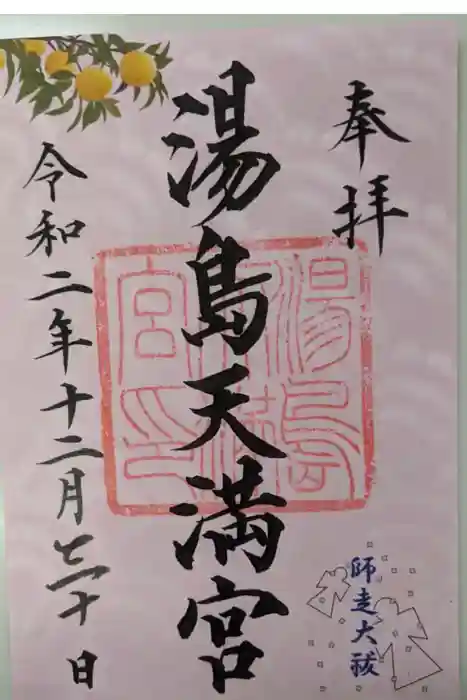 奉拝
湯島天満宮
湯島
天満
宮印
師走大祓
令和二年十二月三十日